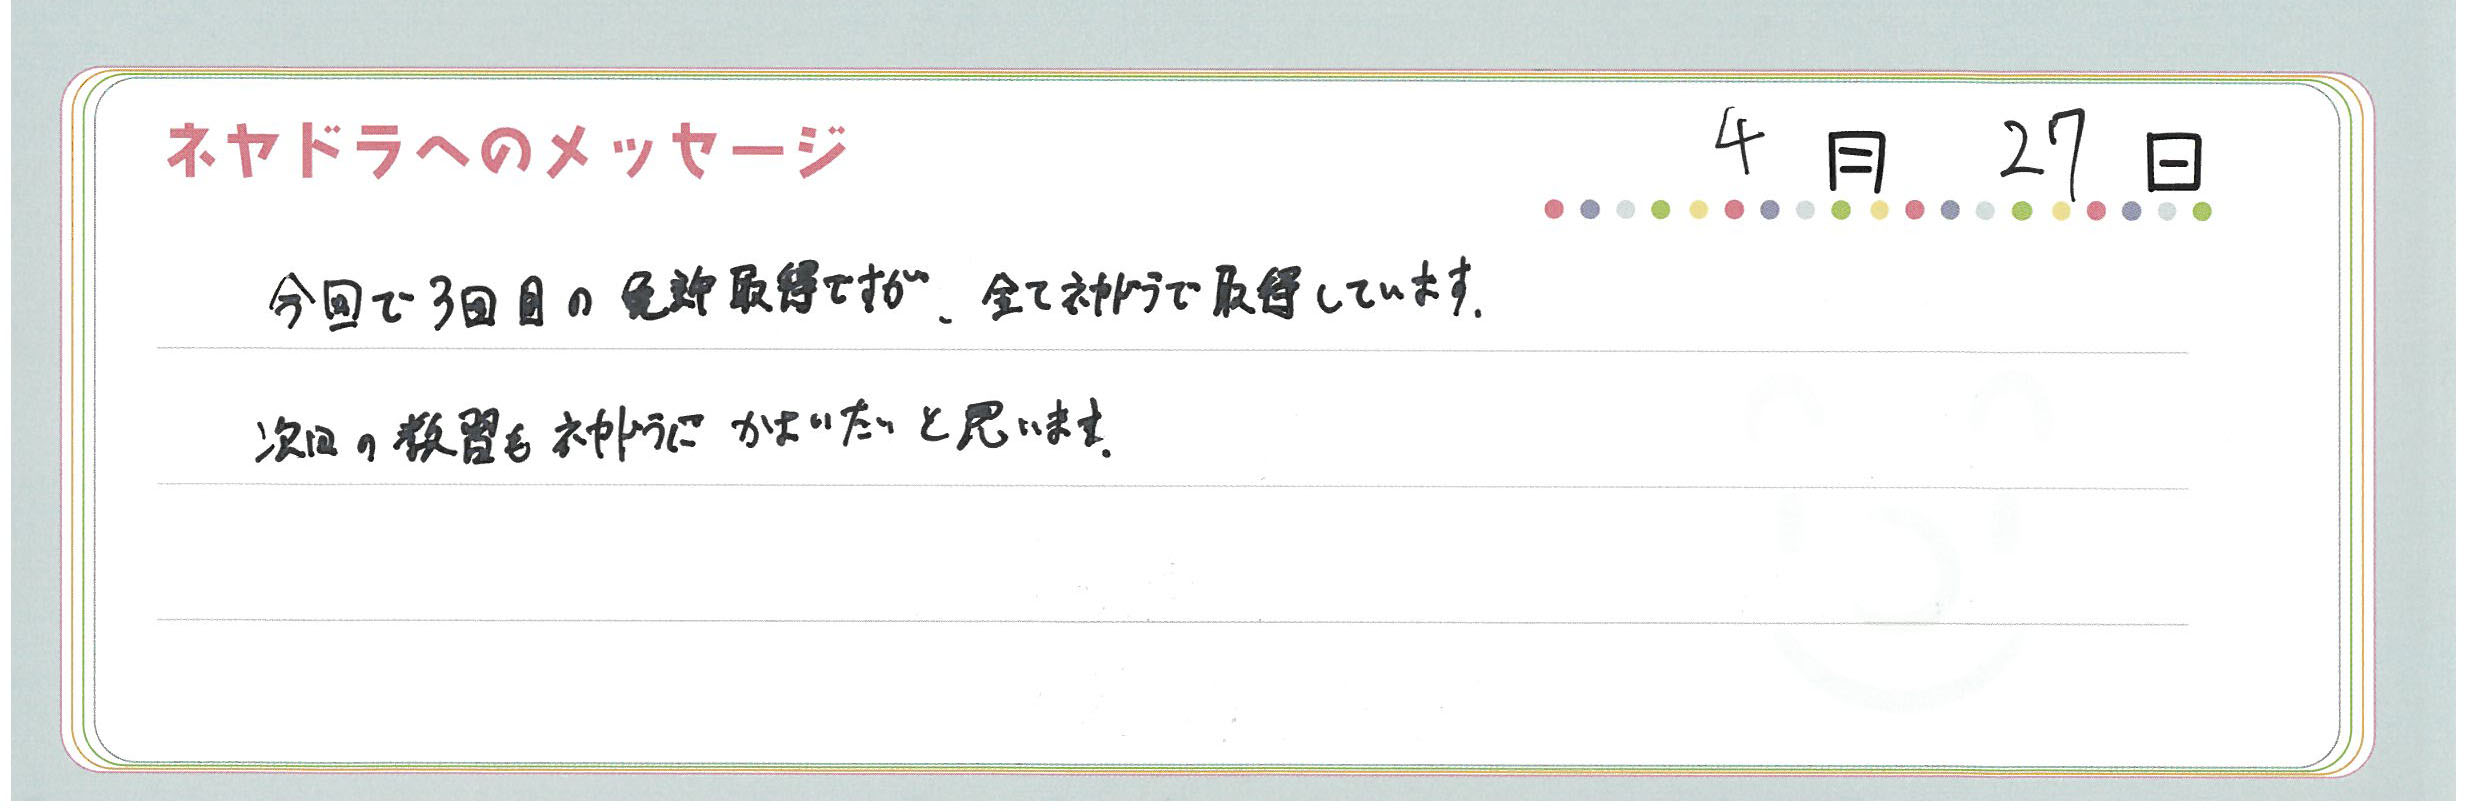 ネヤドラへのメッセージ
4月27日
今回で3回目の免許取得ですが、全てネヤドラで取得しています.
次回の教習もネヤドラにかよいたいと思います.